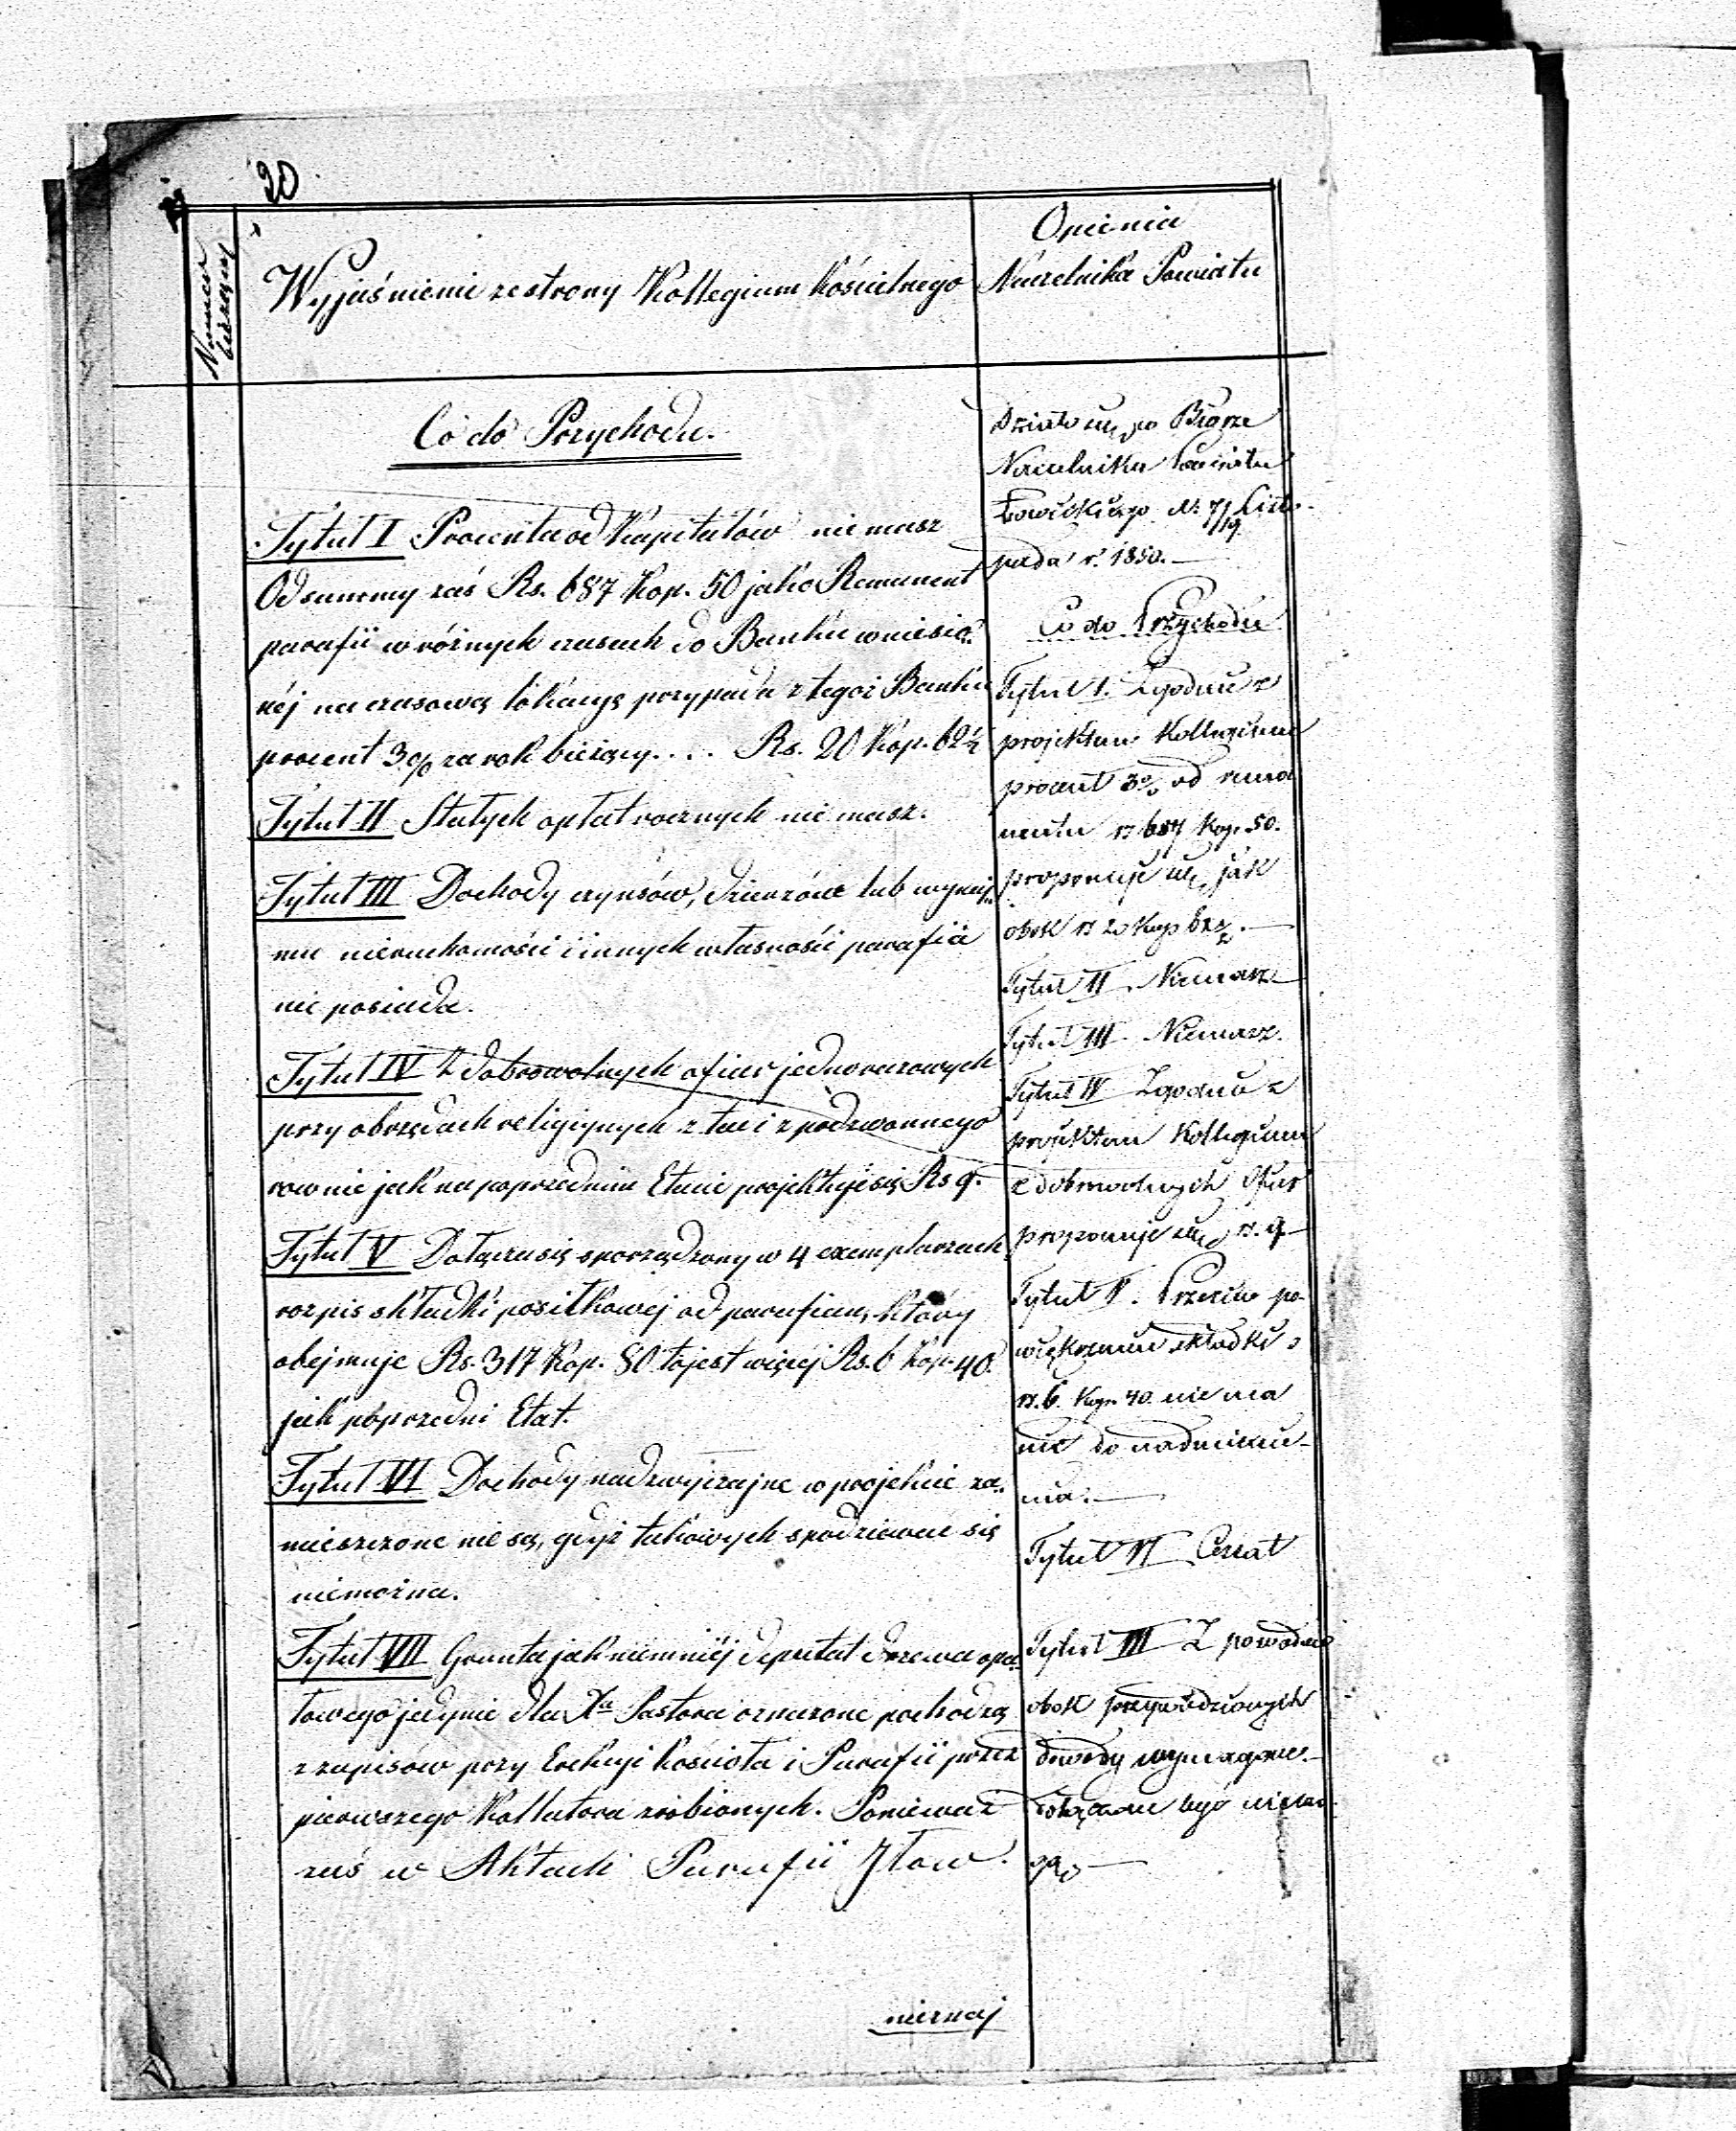 20
Numer bieżący
Wyjaśnienie ze strony Kollegium kościelnego
Co do Przychodu.
Tytuł I Procenta od Kapitałów nie masz
Od summy zaś Rs. 687 Kop. 50 jako Remanent
parafii w różnych czasach do Banku wniesio„
néj na czasową lokacyę przypada z tegoż Banku
procent 3% za rok bieżący.... Rs. 20 Kop. 62½
Tytuł II Stałych opłat rocznych nie masz.
Tytuł III Dochody czynsów, dzierżaw lub wynaj„
mu nieruchomości i innych własności parafia
nie posiada.
Tytuł IV Z dobrowolnych ofiar jednorazowych
przy obrzędach religijnych z tac i z podzwonnego
rownie jak na poprzednim Etacie projektuje się Rs 9.
Tytuł V Dołącza się sporządzony w 4 exemplarzach
rozpis składki posiłkowéj od parafian, który
obejmuje Rs. 317 Kop. 80. to jest więcéj Rs. 6 Kop. 40.
jak poprzedni Etat.
Tytuł VI Dochody nadzwyczajne w projekcie za„
mieszczone nie są, gdyż takowych spodziewać się
niemożna.
Tytuł VII Grunta jak niemniéj deputat drzewa opa„
łowego jedynie dla Xa Pastora oznaczone pochodzą
z zapisów przy Erekcyi kościoła i Parafii przez
pierwszego Kollatora zrobionych. Ponieważ
zaś w Aktach Parafii Iłow.
nieznaj
Opinia
Naczelnika Powiatu
Działo się w Biórze
Naczelnika Powiatu
Łowickiego d. 7/19 Listo-
pada r. 1850.—
Co do Przychodu
Tytuł I. Zgodnie z
projektem Kollegium
procent 3% od rema
nentu rs 687 Kop. 50.
proponuje się, jak
obok rs 20 kop 62½.—
Tytuł II. Niemasz
Tytuł III. Niemasz.
Tytuł IV Zgodnie z
projektem Kollegium
z dobrowolnych Ofiar
proponuje się rs. 9.—
Tytuł V. Przeciw po-
większeniu składki o
rs. 6. Kop. 40. nie ma
nic do nadmienie-
nia.—
Tytuł VI Cessat
Tytuł VII Z powodów
obok przywiedzionych
dowody wymagane